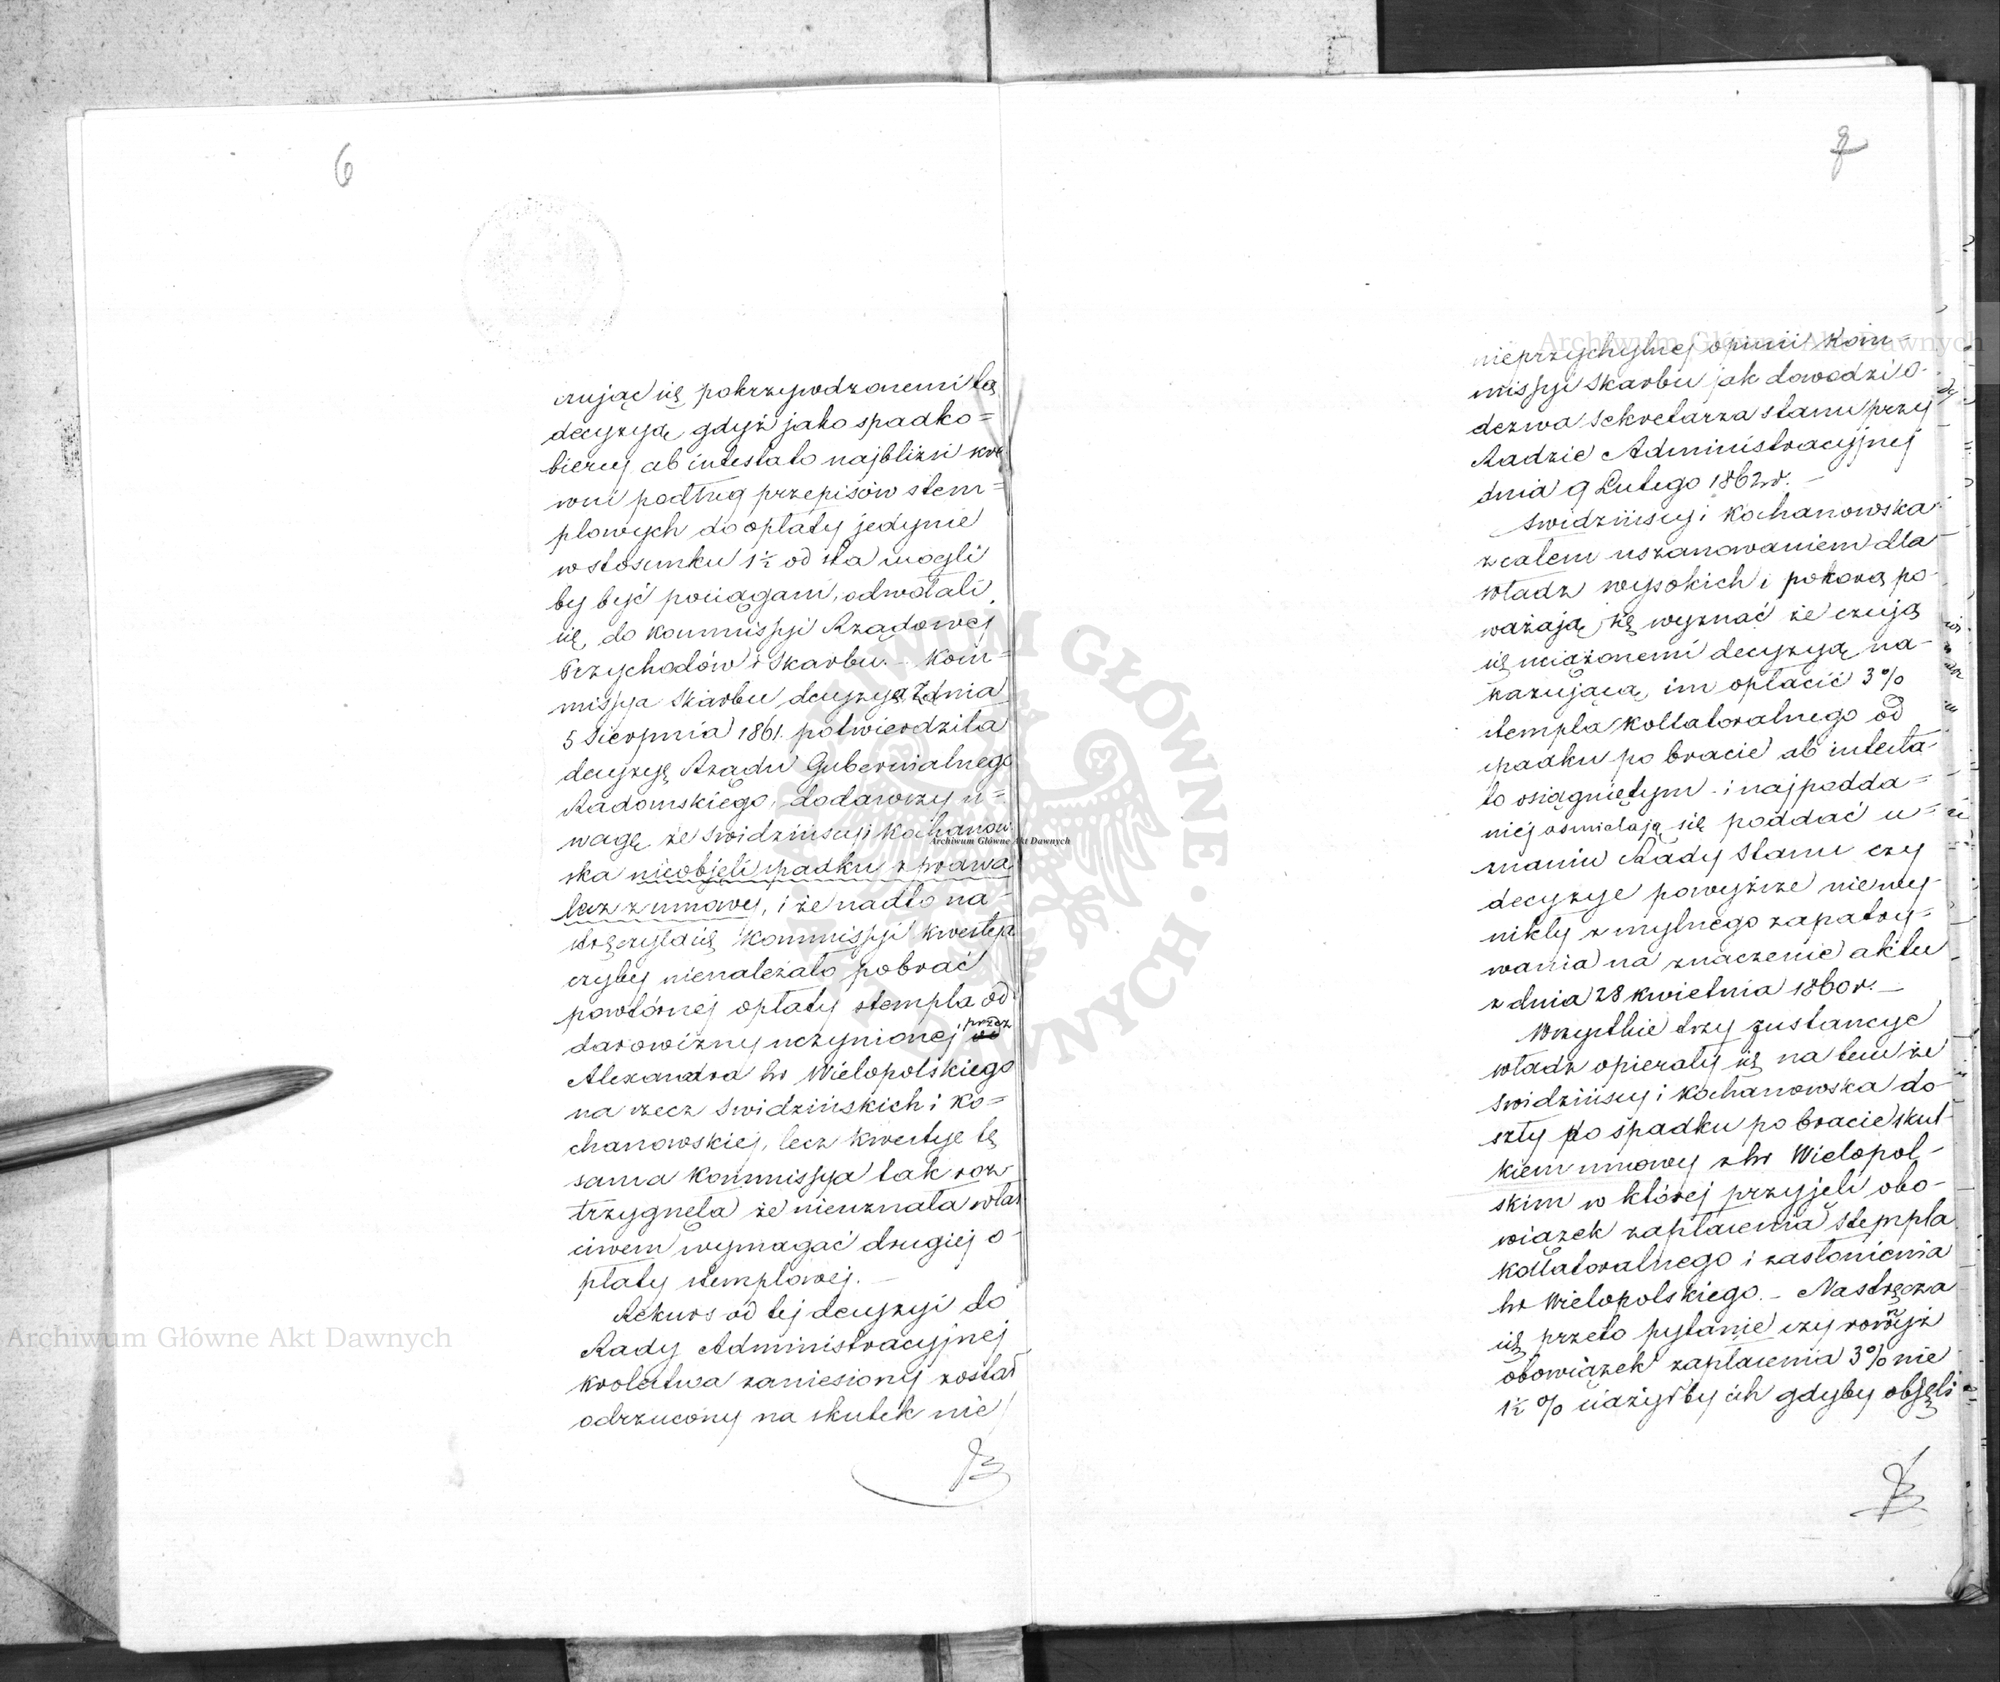 6
czując się pokrzywdzonemi tą
decyzyą, gdyż jako spadko=
biercy ab intestato najbliżsi kre
wni podług przepisów stem=
plowych do opłaty jedynie
w stosunku 1½ od sta mogli
by być pociągani, odwołali
się do Kommissyi Rządowej
Przychodów i Skarbu. Kom=
missya Skarbu decyzyą z dnia
5 Sierpnia 1861. potwierdziła
decyzyę Rządu Gubernialnego
Radomskiego, dodawszy u=
wagę że Swidzińscy i Kochanow
ska nieobjęli spadku z prawa
lecz z umowy, i że nadto na
stręczyła się Kommissyi kwestya
czyby nienależało pobrać
powtórnej opłaty stempla od
darowizny uczynionej przez
Alexandra hr Wielopolskiego
na rzecz Swidzińskich i Ko=
chanowskiej, lecz kwestye tę
sama Kommissya tak roz
trzygnęła że nieuznała właś
ciwem wymagać drugiej o
płaty stemplowej. —
Rekurs od tej decyzyi do
Rady Administracyjnej
Królestwa zaniesiony został
odrzucony na skutek nie
7
nieprzychylnej opinii Kom=
missyi Skarbu jak dowodzi o
dezwa Sekretarza Stanu przy
Radzie Administracyjnej
dnia 9 Lutego 1862 r. —
Swidzińscy i Kochanowska
z całem uszanowaniem dla
władz wysokich i pokorą po
ważają się wyznać że czują
się uciążonemi decyzyą na-
kazującą im opłacić 3%
stempla kollateralnego od
spadku po bracie ab intesta
to osiągniętym - i najpodda=
niej ośmielają się poddać u=
znaniu Rady Stanu czy
decyzye powyższe niewy-
nikły z mylnego zapatry=
wania na znaczenie aktu
z dnia 28 Kwietnia 1860 r. —
Wszystkie trzy justancye
władz opierały się na tem że
Swidzińscy i Kochanowska do-
szły do spadku po bracie skut-
kiem umowy z hr Wielopol-
skim w której przyjęli obo-
wiązek zapłacenia stempla
kollateralnego i zasłonienia
hr Wielopolskiego. – Nastręcza
się przeto pytanie czy również
obowiązek zapłacenia 3% nie
1½ % ciążył by ich gdyby objęli